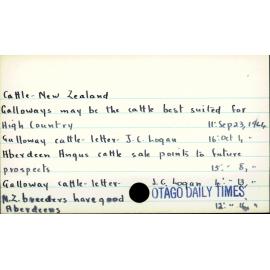 Cattle - New Zealand
Galloways may be the cattle best suited for
High Country 11: Sep 23, 1964
Galloway cattle - letter - J.C. Logan 16: Oct 1, "
Aberdeen Angus cattle sale points to future
prospects 15: " 8, "
Galloway cattle - letter - J.C. Logan 4: " 13, "
N.Z. breeders have good 12: " 16, "
Aberdeens
OTAGO DAILY TIMES